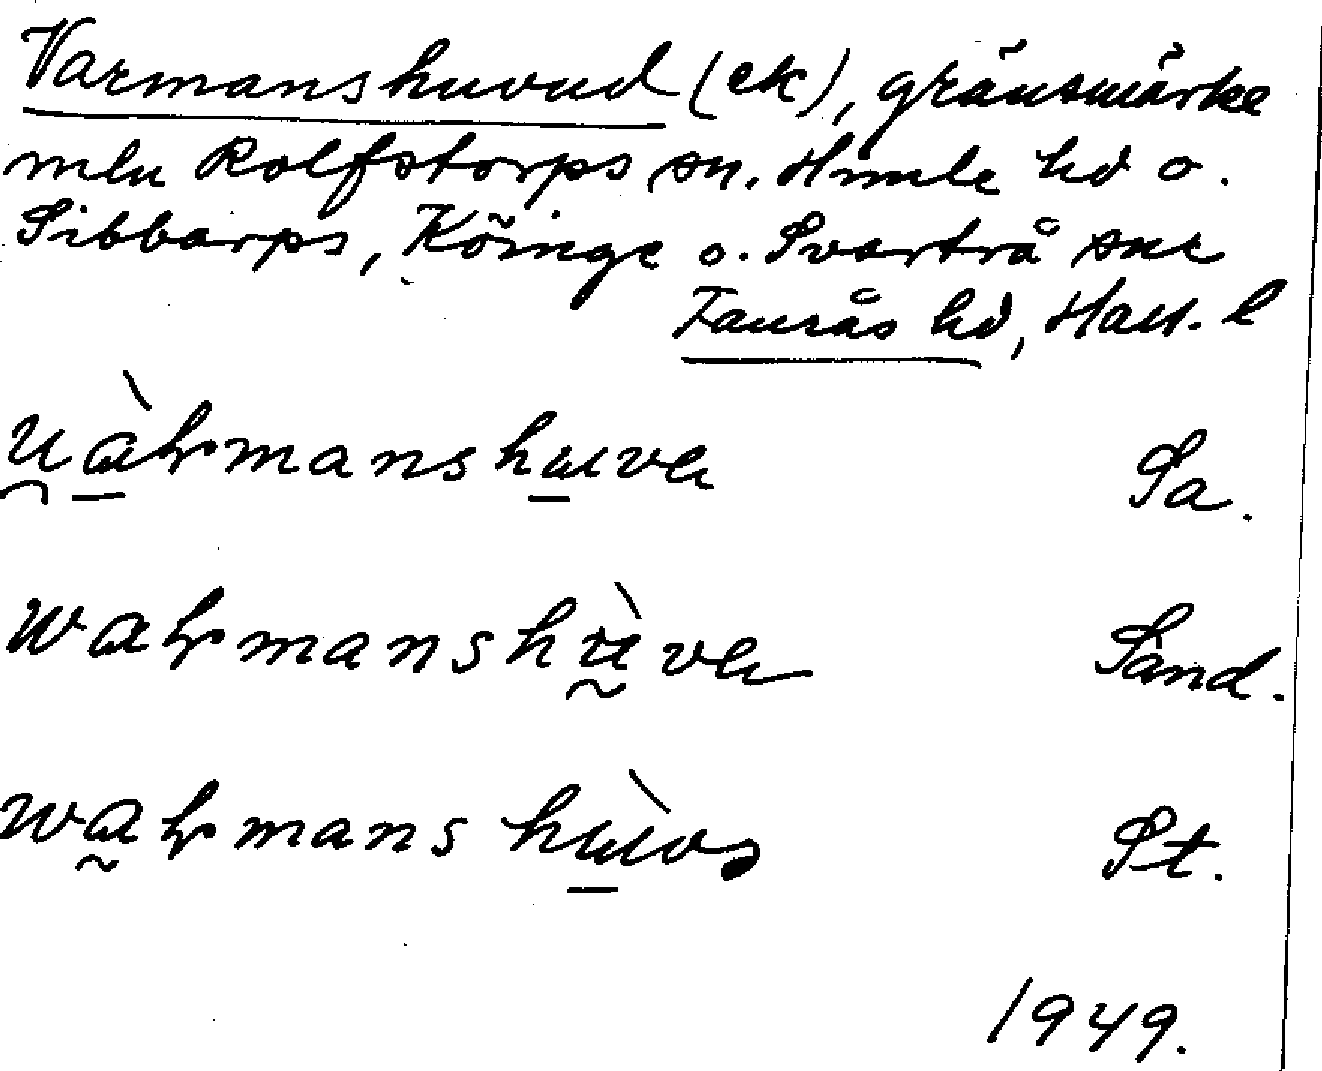 Varmanshuvud (ek), gränsmärke
mln Rolfstorps sn. Himle hd o.
Sibbarps, Köinge o. Svartrå snr
Faurås hd, Hall. l
Sa.
Sand.
St.
1949.